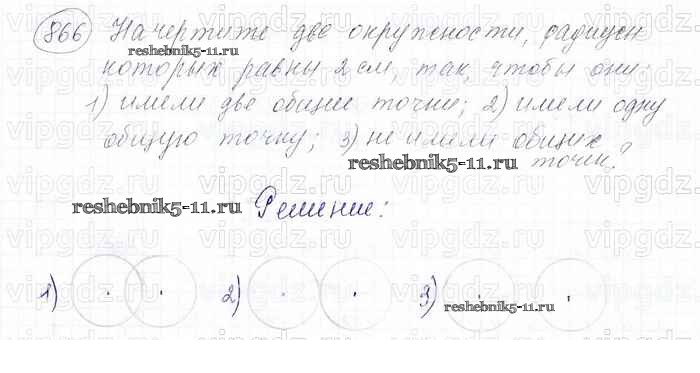 866 Начертите две окружности, радиусы
reshebnik5-11.ru
которых равны 2 см, так, чтобы они:
1) имели две общие точки; 2) имели одну
общую точку; 3) не имели общих
reshebnik5-11.ru точек.
reshebnik5-11.ru Решение:
1) 2) 3)
reshebnik5-11.ru
vipgdz.ru